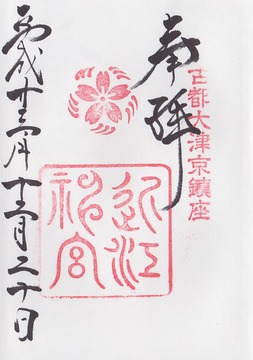 古都大津京鎮座
奉拝
近江神宮
平成十三年十二月二十日